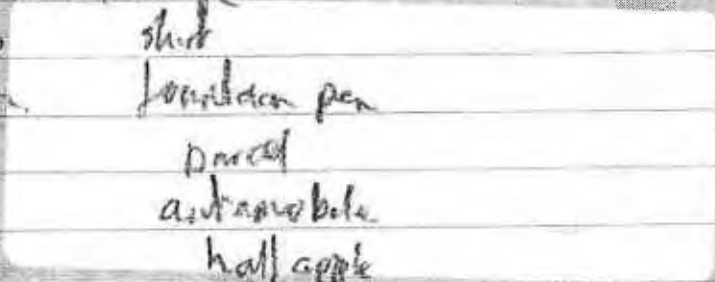 shirt
fountain pen
parcel
automobile
half apple